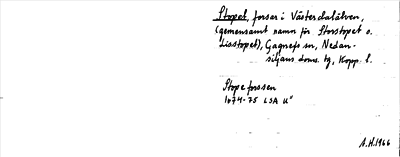 Stopet, forsar i Västerdalälven,
(gemensamt namn för Storstopet o.
Lisstopet), Gagnefs sn, Nedan-
siljans doms. tg, Kopp. l.
Stopeforssen
1674-75 LSA U"
A.H. 1966